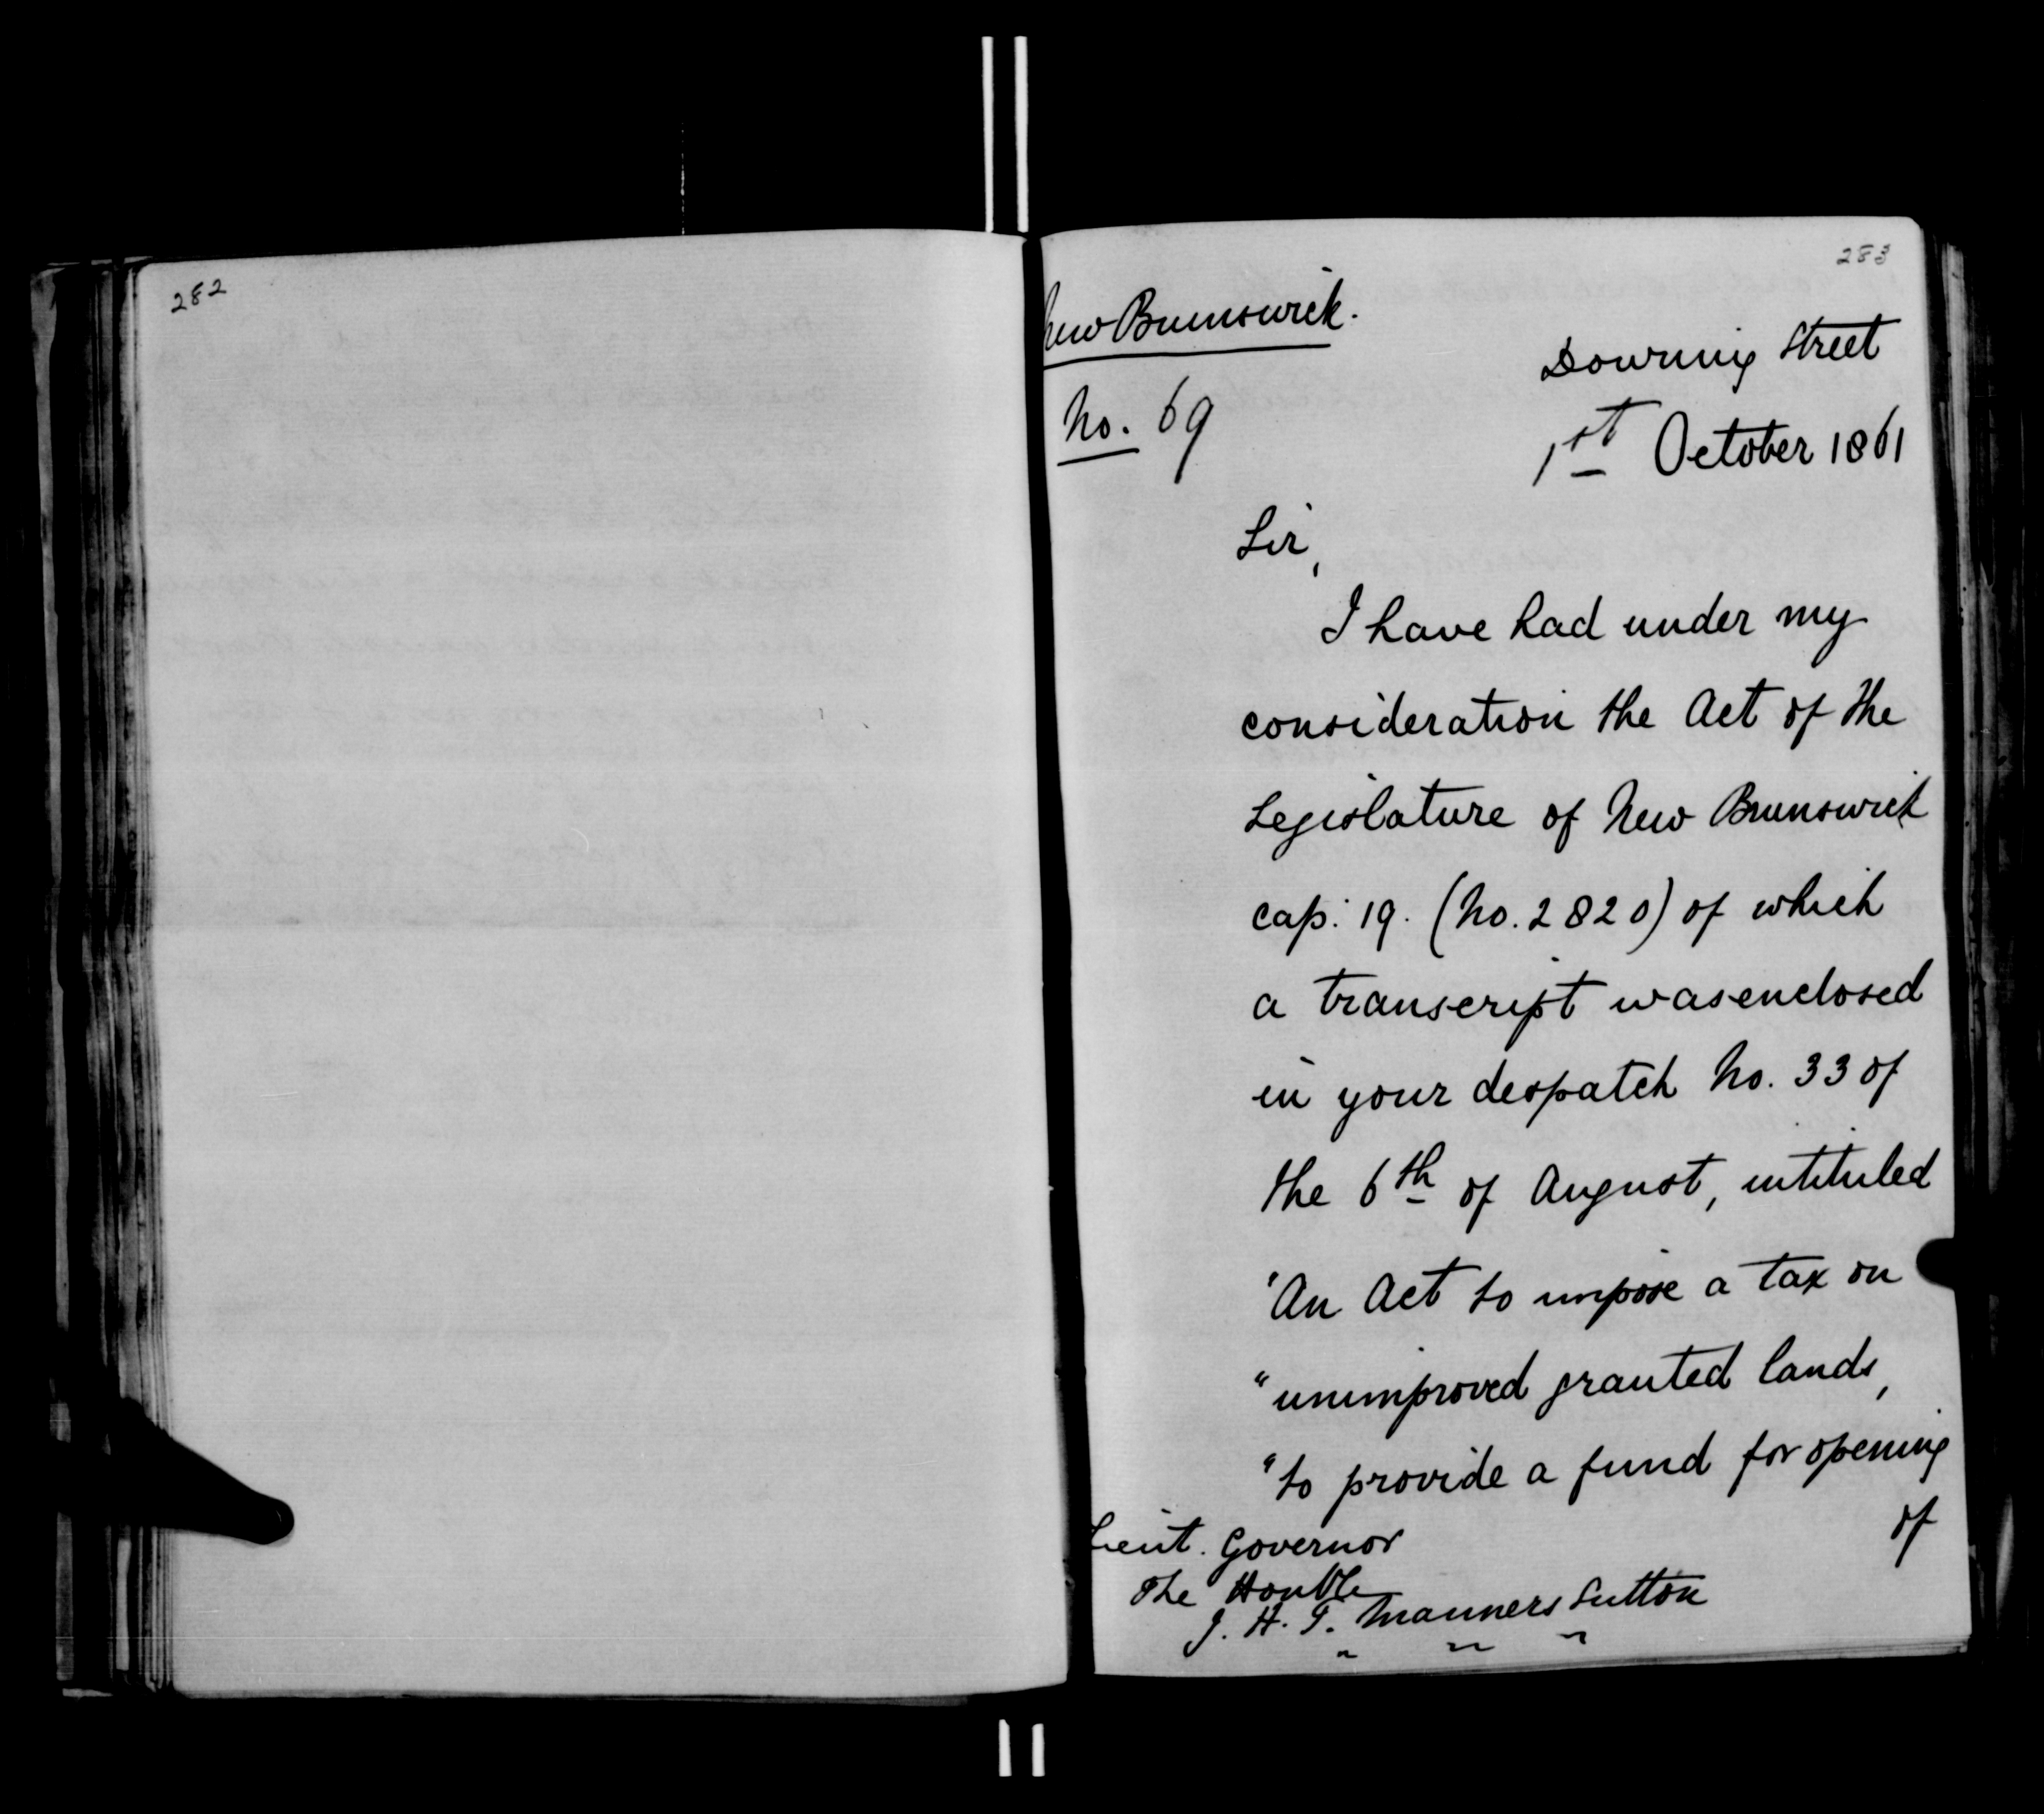 282
283
New Brunswick.
No. 69
Downing Street
1st October 1861
Sir,
I have had under my
consideration the Act of the
Legislature of New Brunswick
cap: 19. (No. 2820) of which
a transcript was enclosed
in your despatch No. 33 of
the 6th of August, intituled
"An Act to impose a tax on
"unimproved granted lands,
"to provide a fund for opening
of
Lieut. Governor
The Honble
J. H. T. Manners Sutton